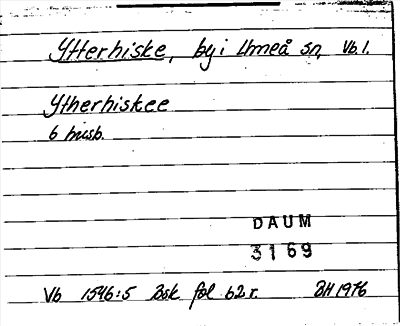 Ytterhiske, by i Umeå sn, Vb. l.
Ytherhiskee
6 husb.
DAUM
3169
Vb 1546:5 Bsk fol 62 r. BH 1976